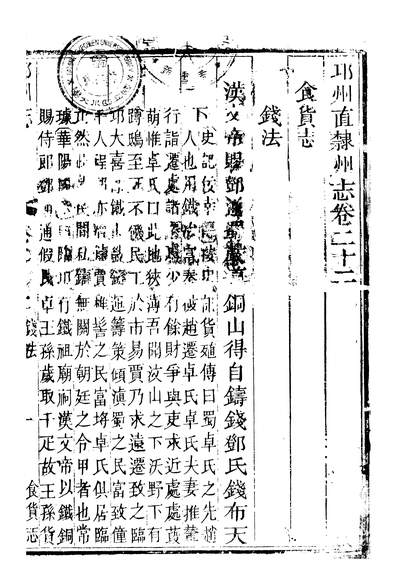 邛州直隸州志卷二十二
食貨志
錢法
漢文帝賜鄧通銅山得自鑄錢鄧氏錢布天
下史記佞幸貨殖傳曰蜀卓氏之先趙
人也用鐵冶富秦破趙遷卓氏卓氏夫妻推輦
行詣遷處諸遷虜少有餘財爭與吏求近處處葭
萌惟卓氏曰此地狹薄吾聞汶山之下沃野下有
蹲鴟至死不饑民工於市易賈乃求遠遷致之臨
邛大喜即鐵山鼓鑄運籌策傾滇蜀之民富致僮
千人程鄭亦遷虜賈椎髻之民富埒卓氏俱居臨
邛然民間私鑄無關於朝廷之令甲者也常
璩華陽國志臨邛有鐵祖廟祠漢文帝以鐵銅
賜侍郎鄧通通假民卓王孫歲取千疋故王孫貨
邛州志 錢法 一 食貨志